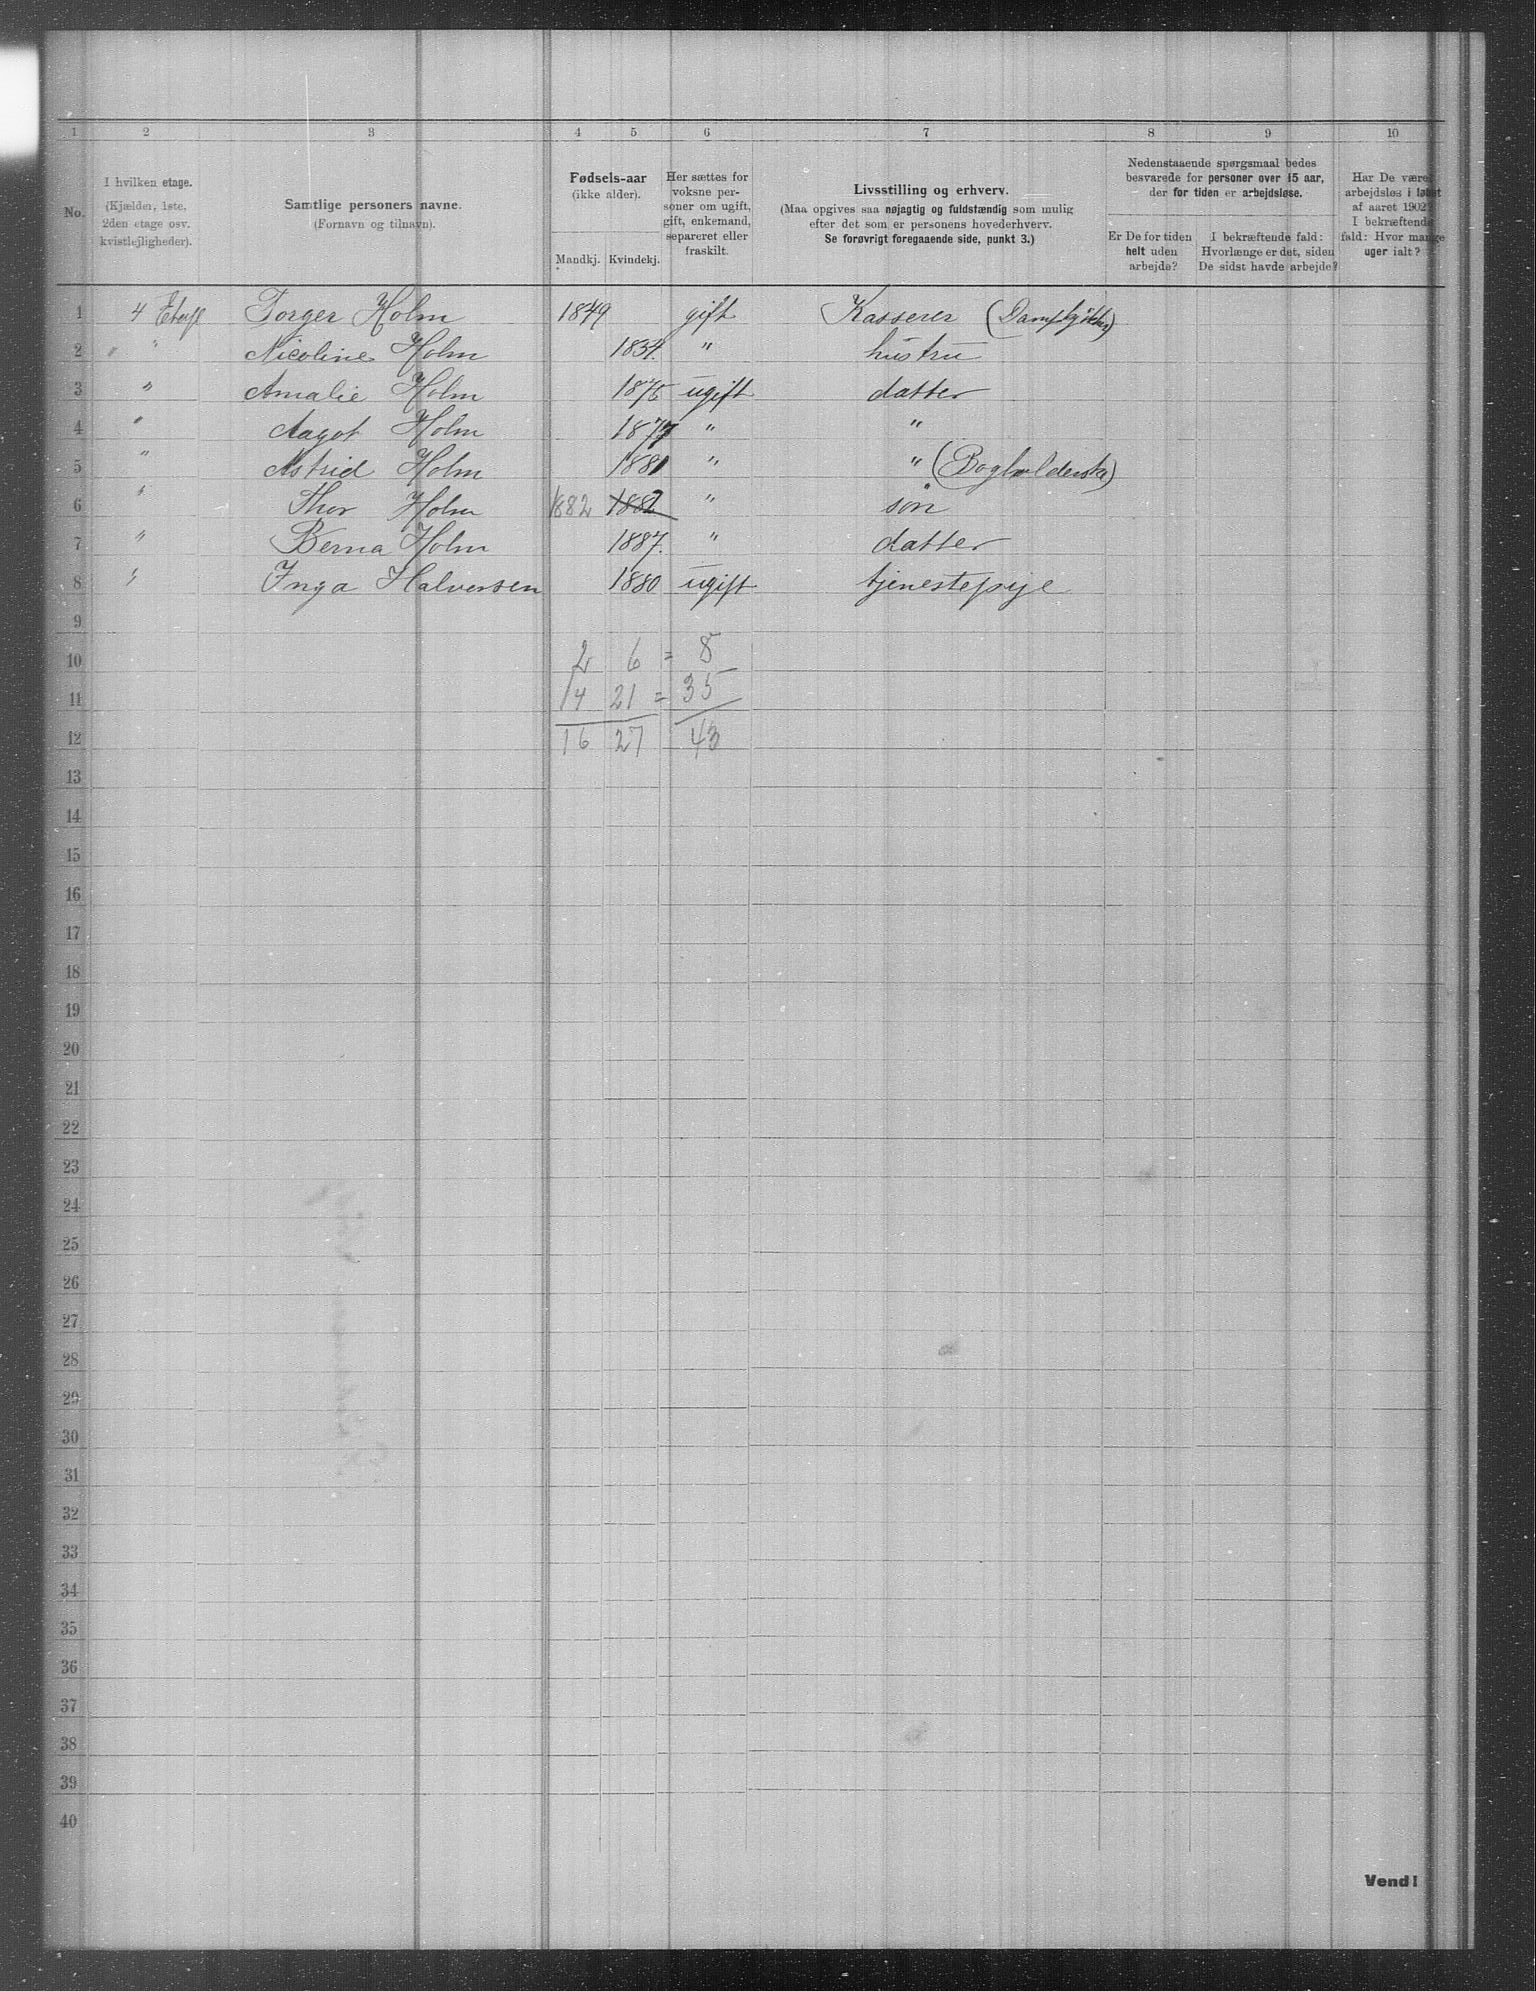 1 2 3 4 5 6 7 8 9 10
No.
I hvilken etage.
(Kjælder, 1ste,
2den etage osv.
kvistlejligheder).
Samtlige personers navne.
(Fornavn og tilnavn).
Fødsels-aar
(ikke alder).
Mandkj. Kvindekj.
Her sættes for
voksne per-
soner om ugift,
gift, enkemand,
separeret eller
fraskilt.
Livsstilling og erhverv.
(Maa opgives saa nøjagtig og fuldstændig som mulig
efter det som er personens hovederhverv.
Se forøvrigt foregaaende side, punkt 3.)
Nedenstaaende spørgsmaal bedes
besvarede for personer over 15 aar,
der for tiden er arbejdsløse.
Er De for tiden
helt uden
arbejde?
I bekræftende fald:
Hvorlænge er det, siden
De sidst havde arbejde?
Har De være
arbejdsløs i løbet
af aaret 1902?
I bekræftende
fald: Hvor mange
uger ialt?
1 4 Torger Holm 1849 gift Kasserer
2 " Nicoline Holm 1834. " hustru
3 " Amalie Holm 1875 ugift datter
4 " Aagot Holm 1877 " "
5 " Astrid Holm 1881 " " (Bogholderske)
6 " Thor Holm 1882 1882 " søn
7 " Berna Holm 1887. " datter
8 " Inga Halvorsen 1880 ugift tjenestepige
9
10 2 6 = 8
11 14 21 = 35
12 16 27 43
13
14
15
16
17
18
19
20
21
22
23
24
25
26
27
28
29
30
31
32
33
34
35
36
37
38
39
40
Vend!